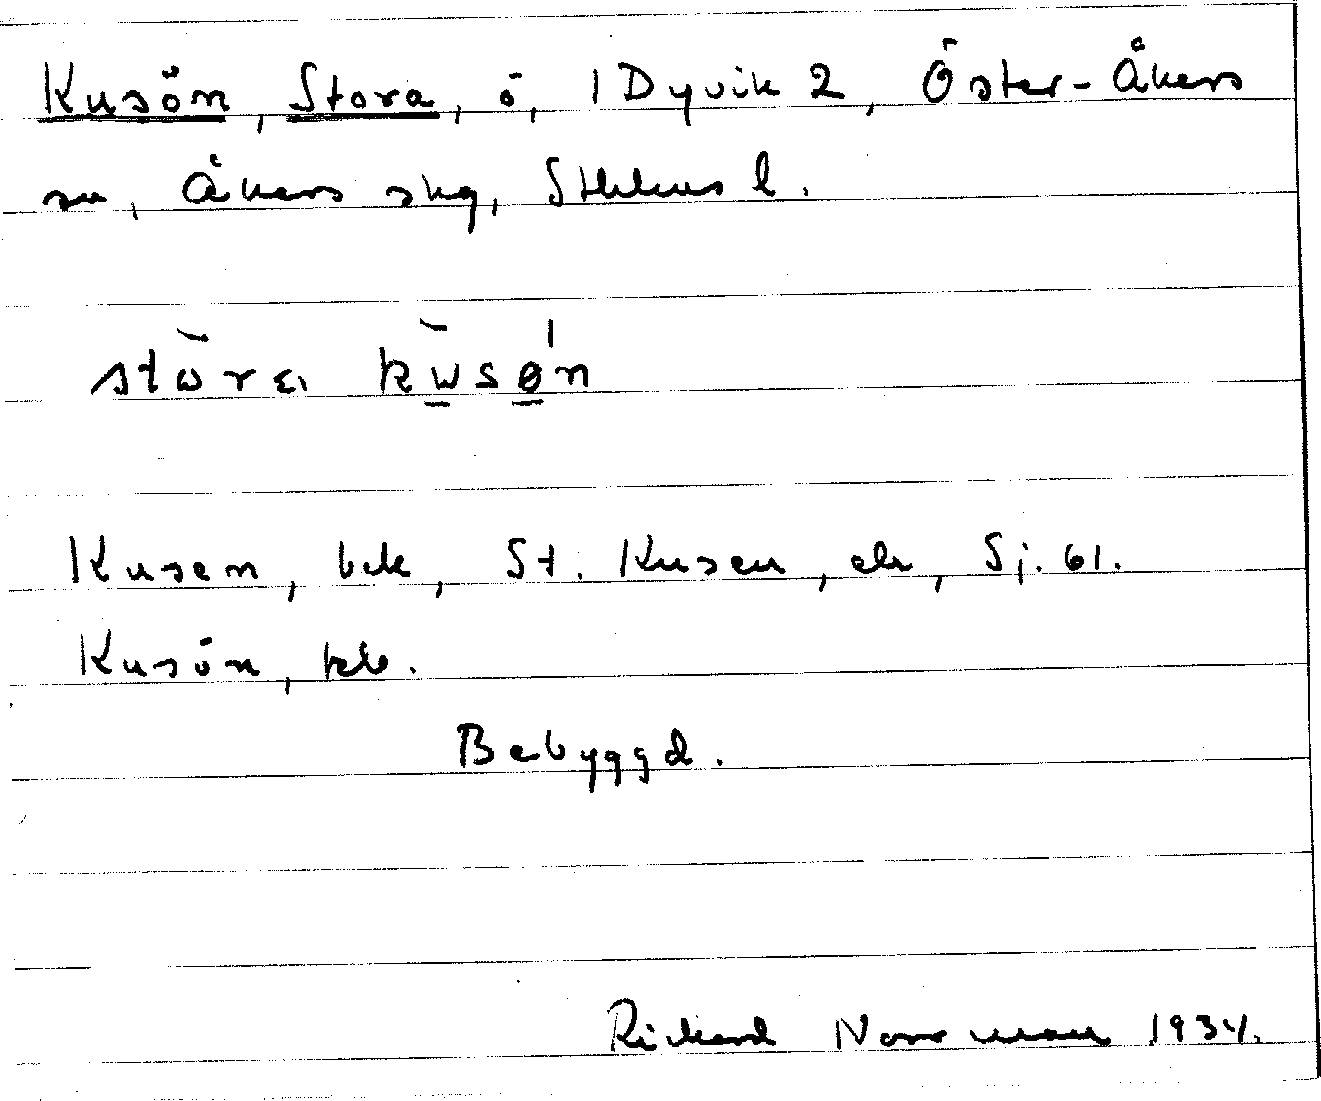 Kusön, Stora, ö, 1 Dyvik 2, Öster-Åkers
sn, Åkers skg, Sthlms l.
Kusen, bek, St. Kusen, ek, Sj. 61.
Kusön, bek.
Bebyggd.
Rickard Norrman 1934.